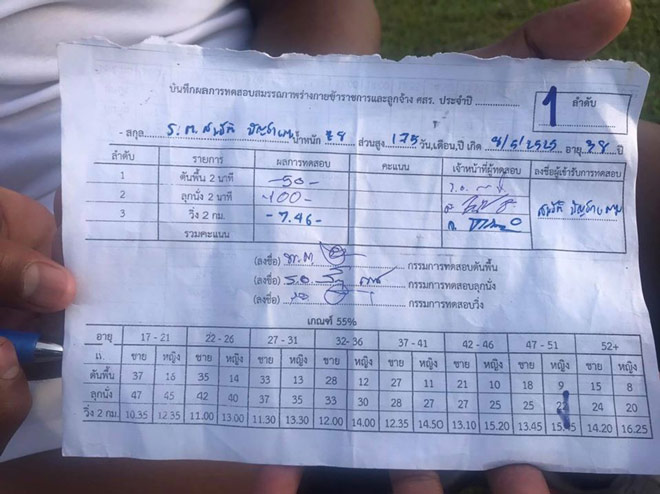 บันทึกผลการทดสอบสมรรถภาพร่างกายข้าราชการและลูกจ้าง ศสร. ประจำปี
1 ลำดับ
- สกุล ร.ต. น้ำหนัก 78 ส่วนสูง 175 วัน,เดือน,ปี เกิด 8/5/2525 อายุ 38 ปี
ลำดับ รายการ ผลการทดสอบ คะแนน เจ้าหน้าที่ผู้ทดสอบ ลงชื่อผู้เข้ารับการทดสอบ
1 ดันพื้น 2 นาที -50-
2 ลุกนั่ง 2 นาที -100-
3 วิ่ง 2 กม. -7.46-
รวมคะแนน
(ลงชื่อ) กรรมการทดสอบดันพื้น
(ลงชื่อ) กรรมการทดสอบลุกนั่ง
(ลงชื่อ) กรรมการทดสอบวิ่ง
เกณฑ์ 55%
อายุ 17 - 21 22 - 26 27 - 31 32- 36 37 - 41 42 - 46 47 - 51 52+
ชาย หญิง ชาย หญิง ชาย หญิง ชาย หญิง ชาย หญิง ชาย หญิง ชาย หญิง ชาย หญิง
ดันพื้น 37 16 35 14 33 13 28 12 27 11 21 10 18 9 15 8
ลุกนั่ง 47 45 42 40 37 35 33 30 28 27 27 25 25 24 20
วิ่ง 2 กม. 10.35 12.35 11.00 13.00 11.30 13.30 12.00 14.00 12.35 14.50 13.10 15.20 13.45 14.20 16.25